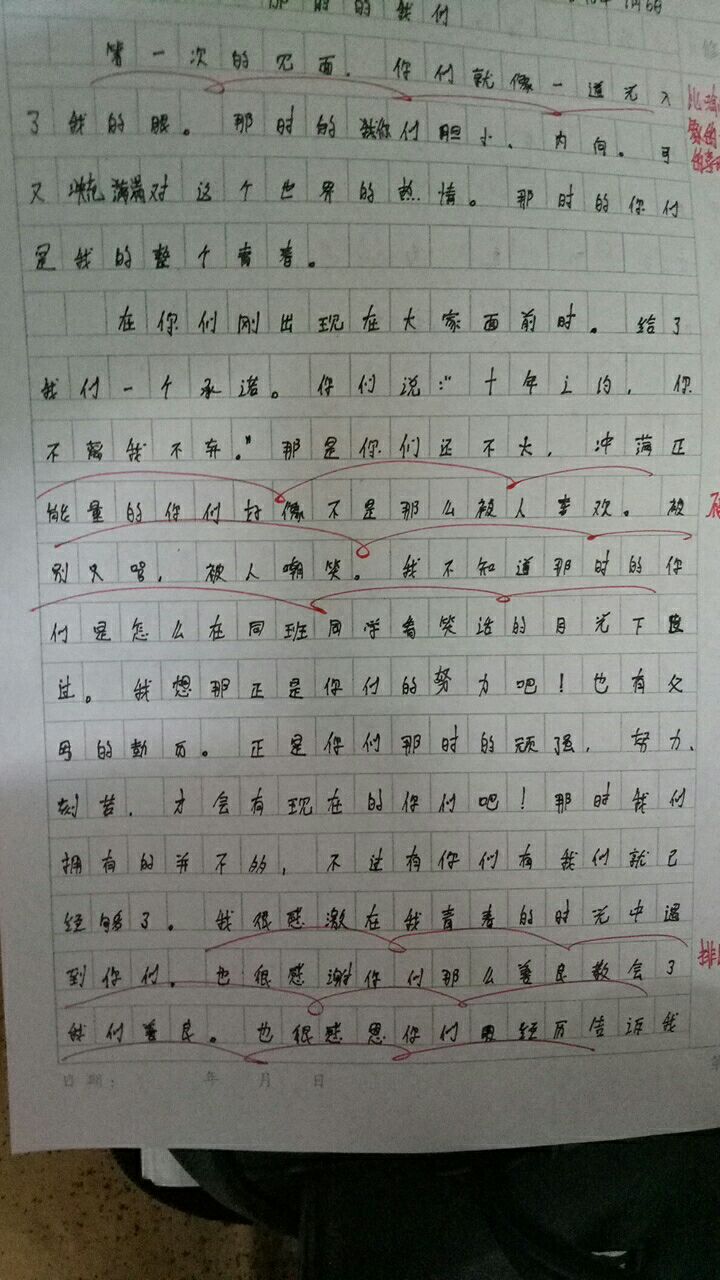 那时的我们
第一次的见面，你们就像一道光入
了我的眼。那时的你们胆小、内向。可
又充满对这个世界的热情。那时的你们
是我的整个青春。
在你们刚出现在大家面前时。给了
我们一个承诺。你们说："十年之约，你
不离我不弃。"那是你们还不大，冲满正
能量的你们好像不是那么被人喜欢。被
别人骂，被人嘲笑。我不知道那时的你
们是怎么在同班同学看笑话的目光下度
过。我想那正是你们的努力吧！也有父
母的勤历。正是你们那时的顽强，努力、
刻苦，才会有现在的你们吧！那时我们
拥有的并不多，不过有你们有我们就已
经够了。我很感激在我青春的时光中遇
到你们。也很感谢你们那么善良教会了
我们善良。也很感恩你们用经历告诉我
日期： 年 月 日